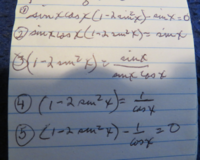 ① sinx cosx (1-2sin²x) - sinx = 0
② sinx cosx (1-2sin²x) = sinx
③ (1-2sin²x) = sinx / sinx cosx
④ (1-2sin²x) = 1 / cosx
⑤ (1-2sin²x) - 1 / cosx = 0